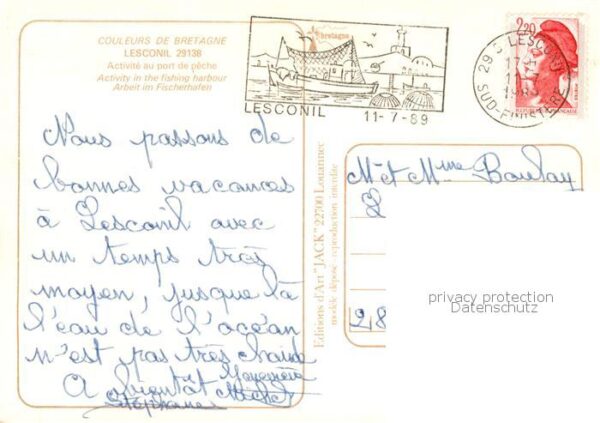 COULEURS DE BRETAGNE
LESCONIL 29138
Activité au port de pêche
Activity in the fishing harbour
Arbeit im Fischerhafen
bretagne
LESCONIL
11-7-89
2,20
29 S LESCONIL
SUD-FINISTERE
Nous passons de
bonnes vacances
à Lesconil avec
un temps très
moyen, jusque là
l'eau de l'océan
n'est pas très chaude
A bientôt
Stéphane
Michel
Editions d'Art "JACK" 22700 Louannec
modèle déposé - reproduction interdite
Mr et Mme Boulay
2
28
privacy protection
Datenschutz